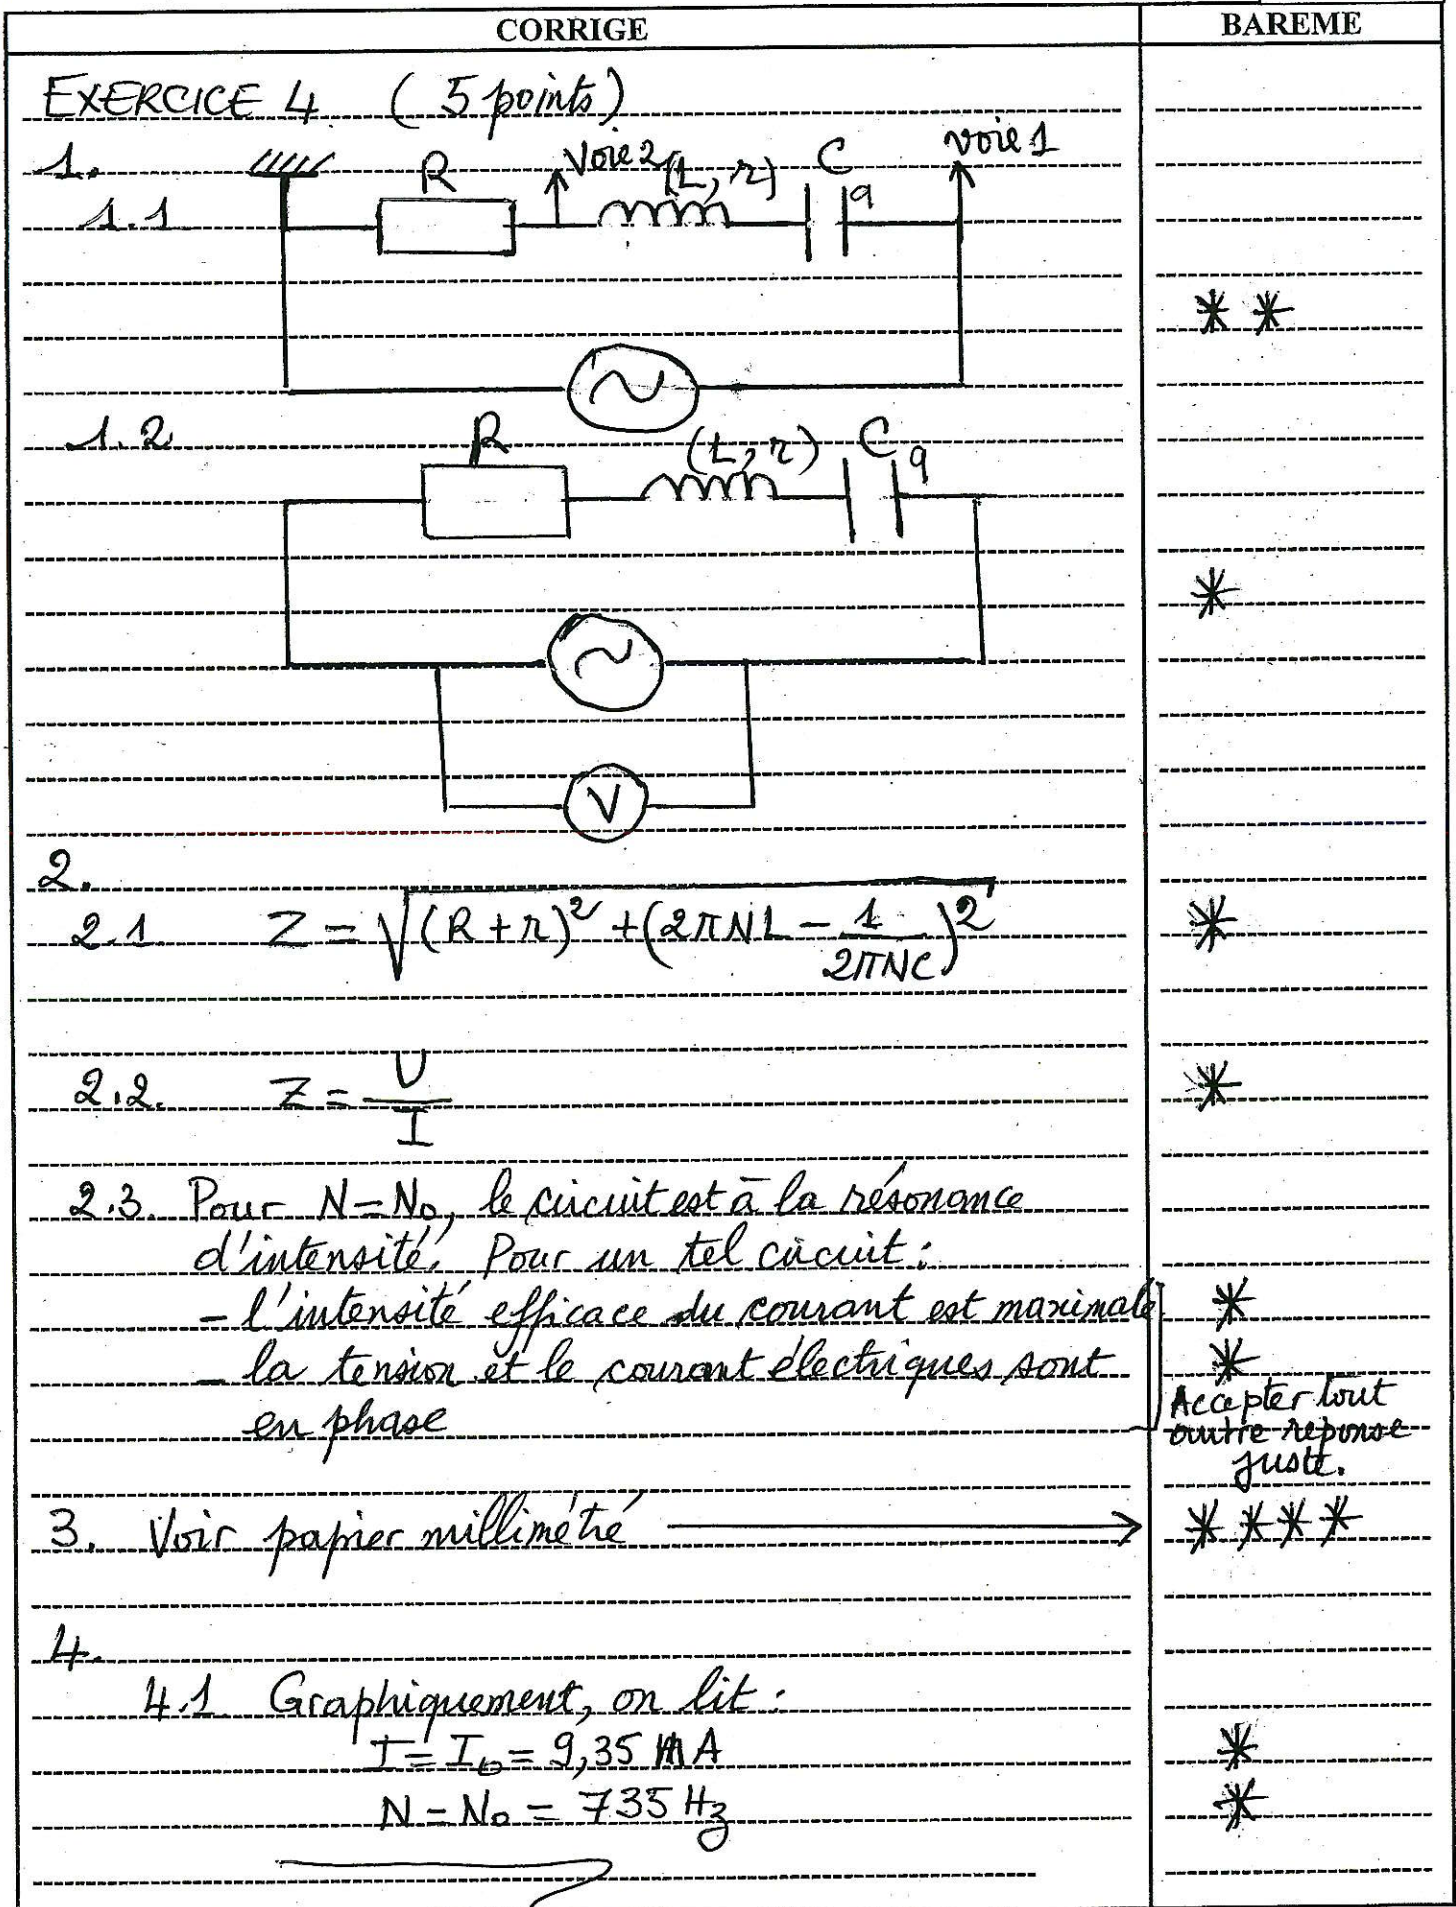 CORRIGE
BAREME
EXERCICE 4 ( 5 points)
1.
R Voie 2 (L, r) C voie 1
1.1 q
* *
1.2 R (L, r) C q
*
V
2.
2.1 Z = √(R + r)² + (2πNL - 1/2πNC)² *
2.2. Z = U/I *
2.3. Pour N = N₀, le circuit est à la résonance
d'intensité. Pour un tel circuit :
- l'intensité efficace du courant est maximale *
- la tension et le courant électriques sont *
en phase
Accepter tout
autre reponse
juste.
3. Voir papier millimétré → * * * *
4.
4.1 Graphiquement, on lit :
I = I₀ = 9,35 mA *
N = N₀ = 735 Hz *